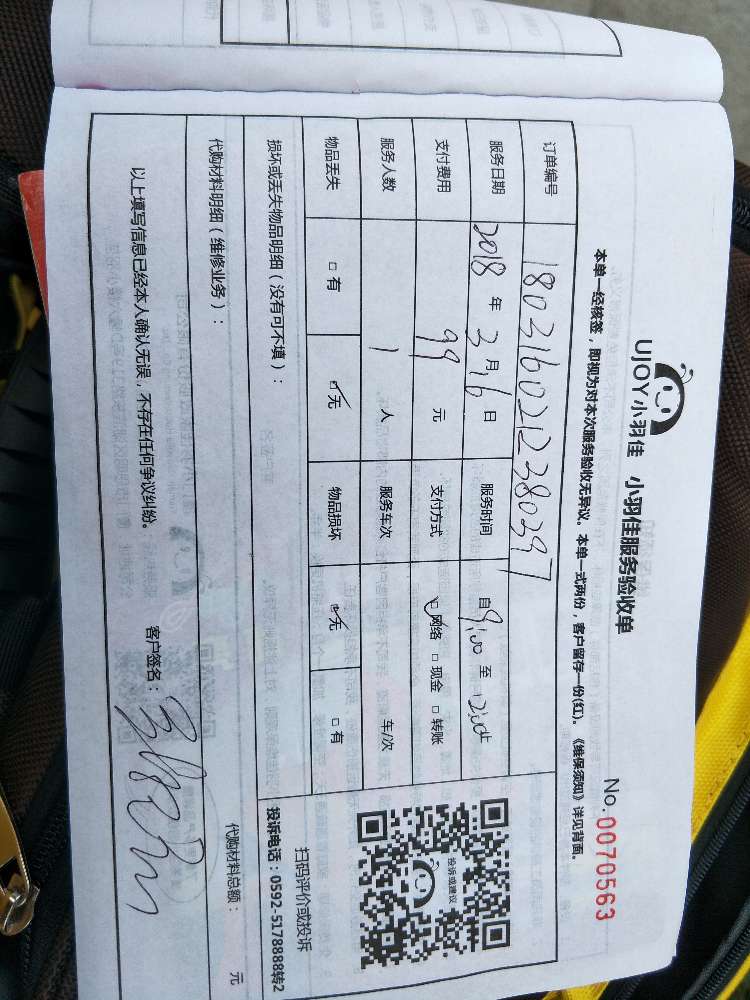 UJOY小羽佳 小羽佳服务验收单
No. 0070563
本单一经核签，即视为对本次服务验收无异议。本单一式两份，客户留存一份(红)。《维保须知》详见背面。
订单编号 1803160212380397
服务日期 2018 年 3 月 16 日 服务时间 自 9:00 至 12:00 止
支付费用 99 元 支付方式 ☑网络 □现金 □转账
服务人数 1 人 服务车次 车/次
物品丢失 □有 ☑无 物品损坏 ☑无 □有
损坏或丢失物品明细（没有可不填）：
投诉或建议
扫码评价或投诉
投诉电话：0592-5178888转2
代购材料明细（维修业务）：
代购材料总额： 元
以上填写信息已经本人确认无误，不存在任何争议纠纷。 客户签名：